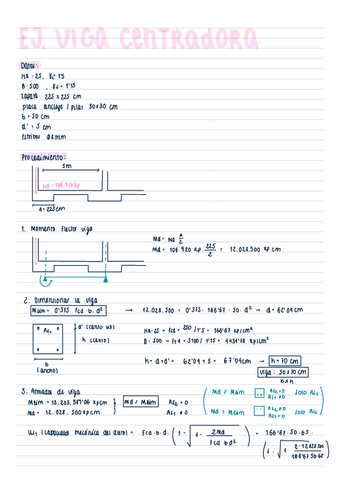 EJ. VIGA CENTRADORA
Datos:
HA-25, γc 1'5
B-500, γs = 1'15
zapata 225 x 225 cm
placa anclaje / pilar 30x30 cm
b = 50 cm
d' = 5 cm
Estribos ø8mm
Procedimiento:
5m
A=225cm
1. Momento flector viga
Md = Nd A/2
Md = 106 920 kp 225/2 = 12.028.500 kp cm
2. Dimensionar la viga
Mlim = 0'375 fcd b d² → 12.028.500 = 0'375 · 166'67 · 50 · d² → d = 62'04 cm
As1
d' (canto util)
h (canto)
b (ancho)
HA-25 → fcd = 250 / 1'5 = 166'67 kp/cm²
B-500 → Fyd = 5100 / 1'15 = 4434'78 kp/cm²
h = d+d' = 62'04 + 5 = 67'04 cm → h = 70 cm
viga: 50 x 70 cm
b x h
3. Armado de viga
Md < Mlim
As2 = 0
As1 ≠ 0
Md < Mlim As2=0 As1≠0 solo As1
Md > Mlim
Md = 12.028.500 kp cm
Us1 (capacidad mecánica del acero) = Fcd · b · d · (1 - √(1 - 2Md / fcd b d²)) = 166'67 · 50 · 65 · (1 - √(1 - 2·12028500 / 166'67·50·65²))